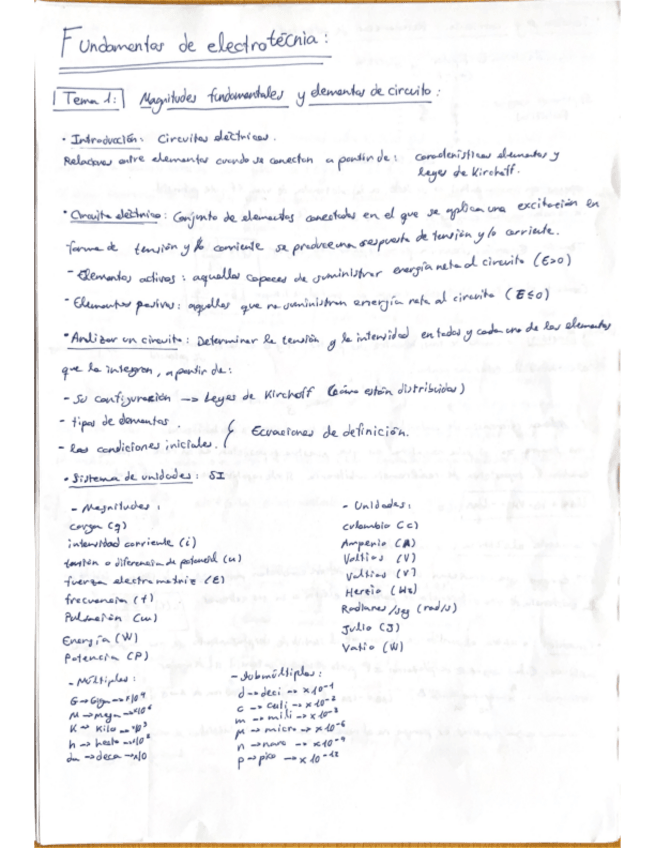 Fundamentos de electrotécnia:
Tema 1: Magnitudes fundamentales y elementos de circuito:
· Introducción: Circuitos eléctricos.
Relaciones entre elementos cuando se conectan a partir de: características elementos y
leyes de Kirchoff.
· Circuito eléctrico: Conjunto de elementos conectados en el que se aplica una excitación en
forma de tensión y/o corriente se produce una respuesta de tensión y/o corriente.
- Elementos activos: aquellos capaces de suministrar energía neta al circuito (E>0)
- Elementos pasivos: aquellos que no suministran energía neta al circuito (E≤0)
· Analizar un circuito: Determinar la tensión y la intensidad en todos y cada uno de los elementos
que lo integran, a partir de:
- Su configuración → Leyes de Kirchoff (cómo están distribuidos)
- tipos de elementos.
- las condiciones iniciales. Ecuaciones de definición.
· Sistema de unidades: SI
- Magnitudes:
carga (q)
intensidad corriente (i)
tensión o diferencia de potencial (u)
fuerza electromotriz (E)
frecuencia (f)
Pulsación (ω)
Energía (W)
Potencia (P)
- Unidades:
culombio (C)
Amperio (A)
Voltios (V)
Voltios (V)
Hercio (Hz)
Radianes/seg (rad/s)
Julio (J)
Vatio (W)
- Múltiplos:
G → Giga → x10⁹
M → mega → x10⁶
K → Kilo → x10³
h → hecto → x10²
da → deca → x10
- Submúltiplos:
d → deci → x10⁻¹
c → centi → x10⁻²
m → mili → x10⁻³
μ → micro → x10⁻⁶
n → nano → x10⁻⁹
p → pico → x10⁻¹²